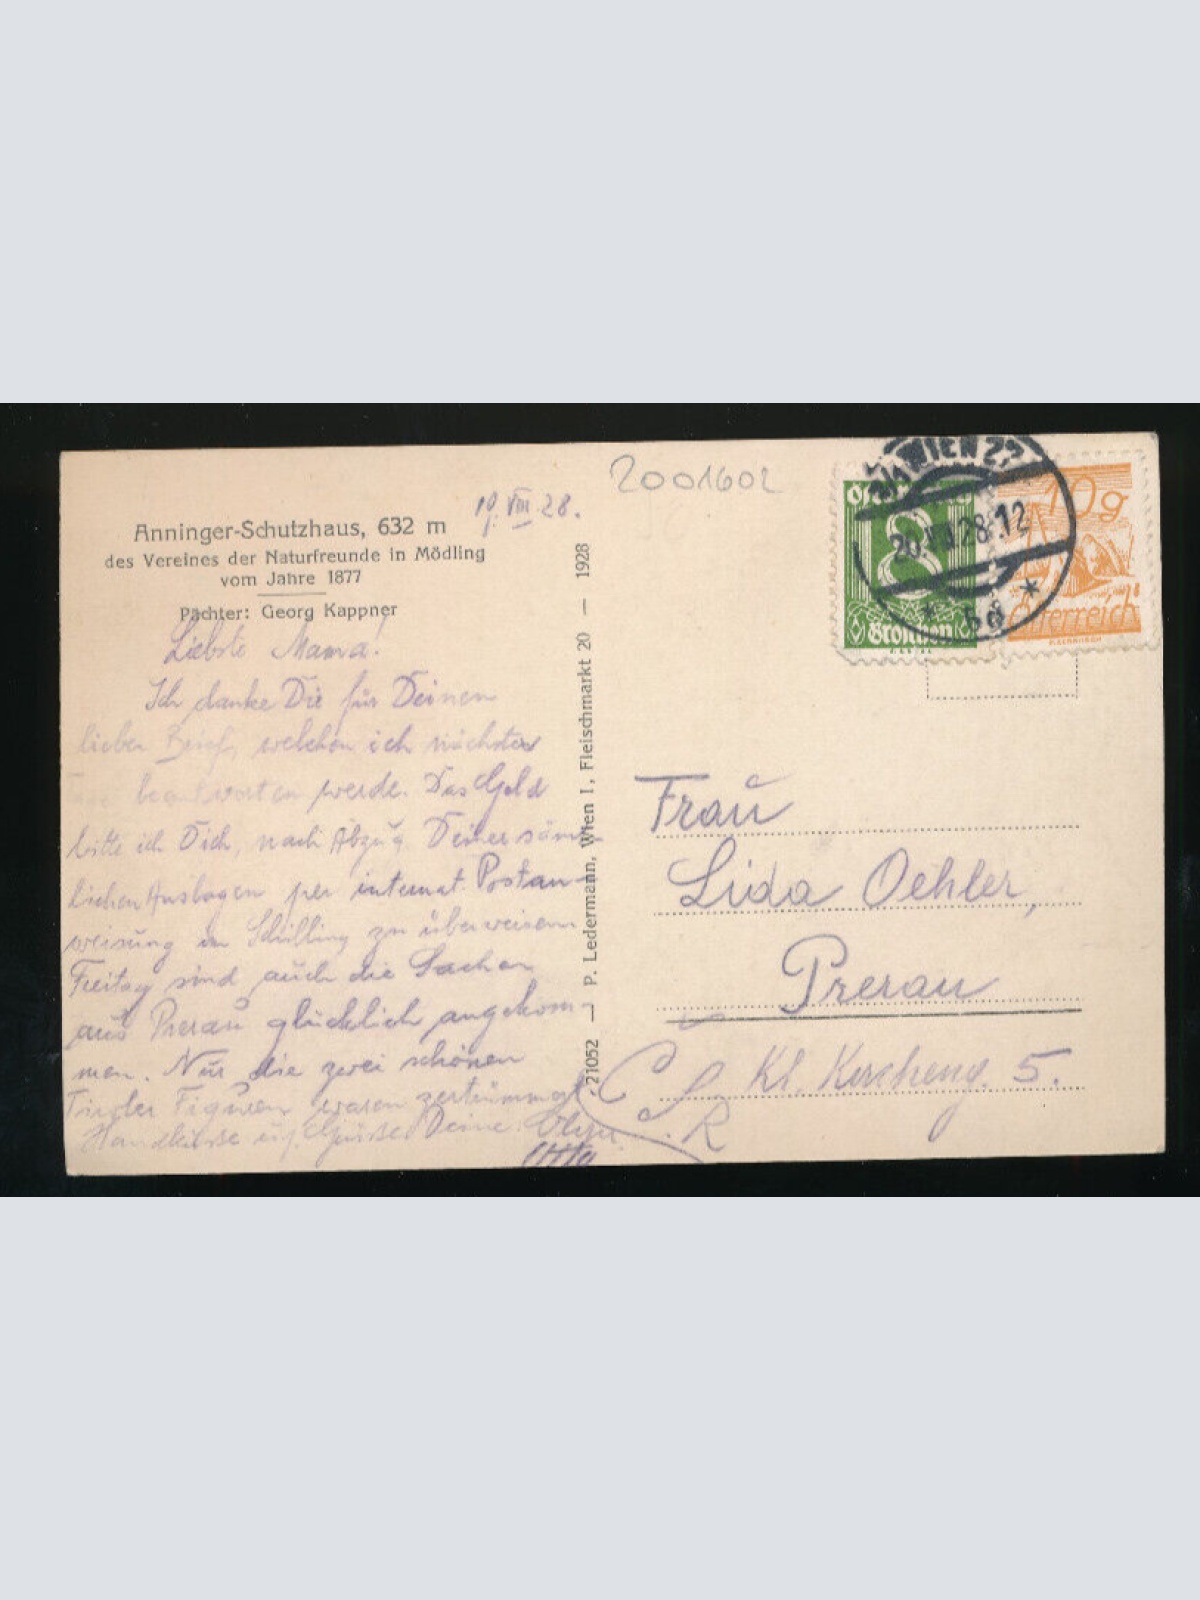 19. VIII. 28.
Anninger-Schutzhaus, 632 m
des Vereines der Naturfreunde in Mödling
vom Jahre 1877
Pächter: Georg Kappner
Liebste Mama!
Ich danke Dir für Deinen
lieben Brief, welchen ich nächster
beantworten werde. Das Geld
bitte ich Dich, nach Abzug Deiner sämt-
lichen Auslagen per internat. Postan-
weisung in Schilling zu überweisen
Freitag sind auch die Sachen
aus Prerau glücklich angekom-
men. Nur die zwei schönen
Tiroler Figuren waren zertrümmert.
Handküsse u. Grüsse Deine
21052 — P. Ledermann, Wien I, Fleischmarkt 20 — 1928
2001602
WIEN
20.VIII.28.12
8
Groschen
10g
Österreich
Frau
Lida Oehler,
Prerau
Kl. 5.
Č.S.R